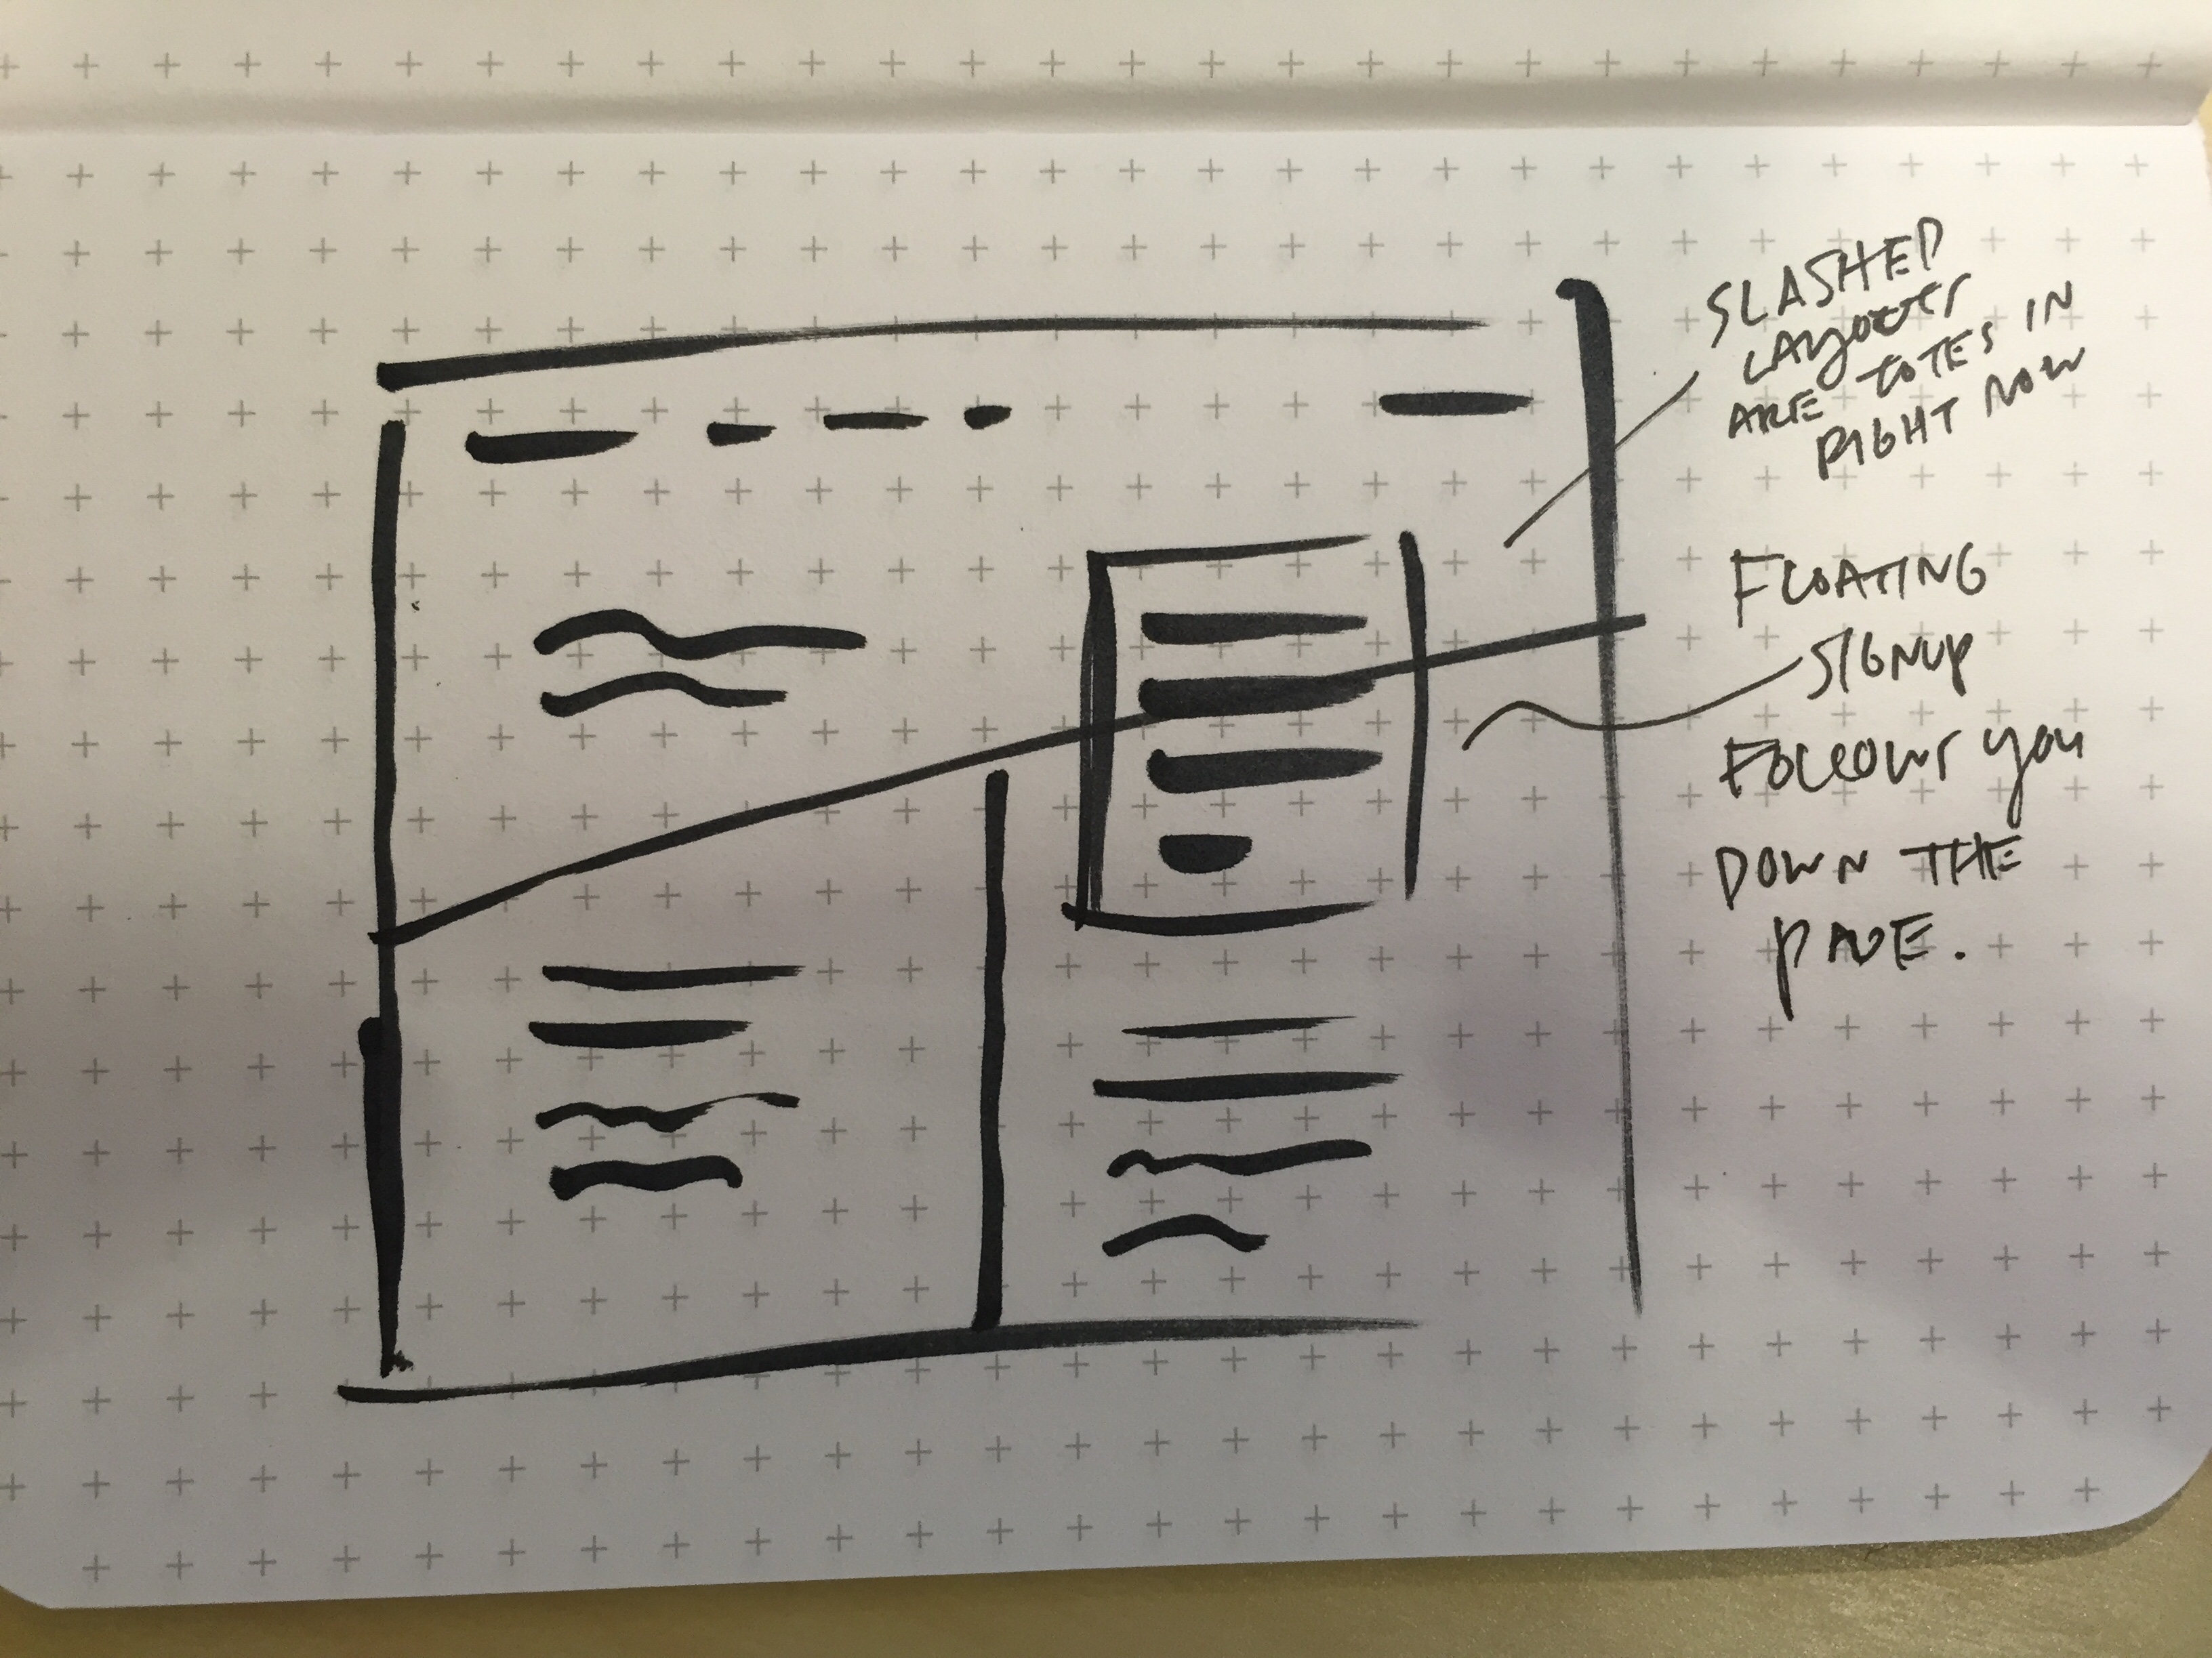 SLASHED
LAYOUTS
ARE TOTES IN
RIGHT NOW
FLOATING
SIGNUP
FOLLOWS YOU
DOWN THE
PAGE.